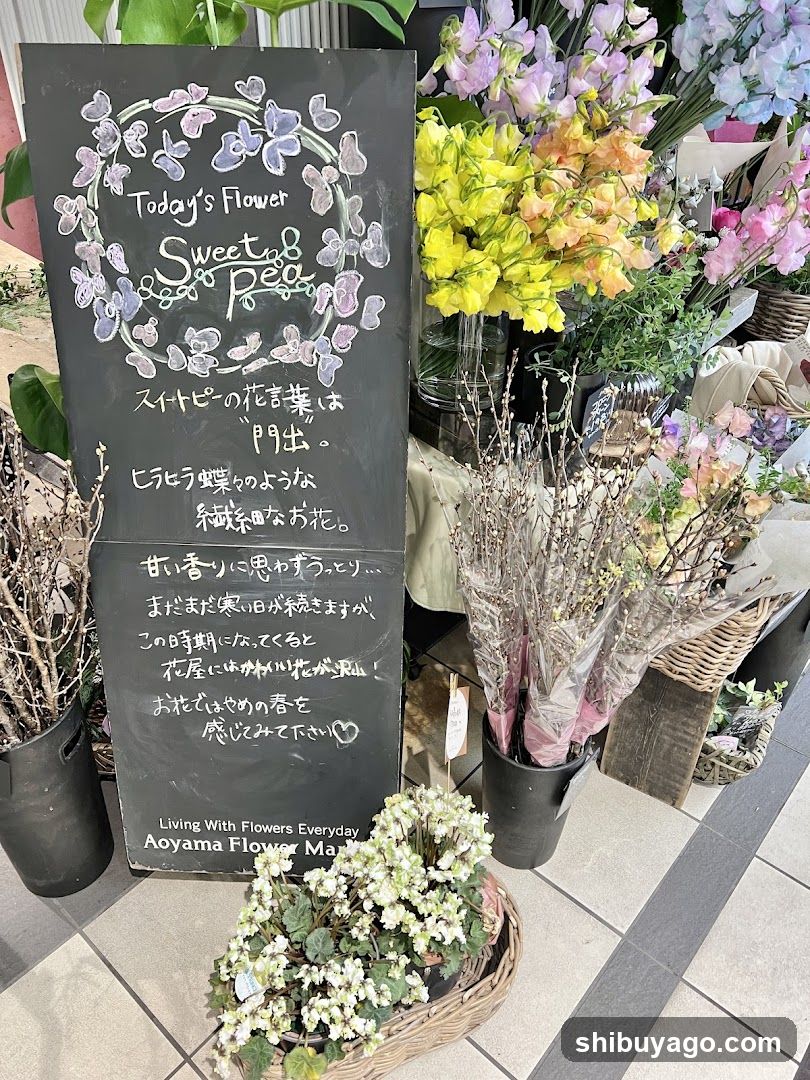 Today's Flower
Sweet
pea
スイートピーの花言葉は
"門出"。
ヒラヒラ蝶々のような
繊細なお花。
甘い香りに思わずうっとり...
まだまだ寒い日が続きますが、
この時期になってくると
花屋にはかわいい花が沢山!
お花ではやめの春を
感じてみて下さい♡
Living With Flowers Everyday
Aoyama Flower Mar
shibuyago.com